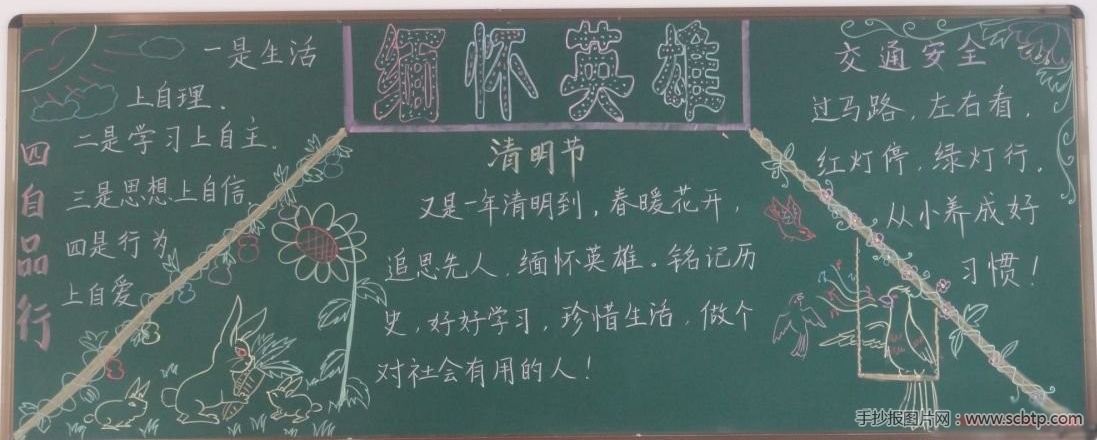 缅怀英雄
四自品行
一是生活
上自理。
二是学习上自主。
三是思想上自信。
四是行为
上自爱
清明节
又是一年清明到，春暖花开，
追思先人，缅怀英雄。铭记历
史，好好学习，珍惜生活，做个
对社会有用的人！
交通安全
过马路，左右看，
红灯停，绿灯行，
从小养成好
习惯！
手抄报图片网：www.scbtp.com